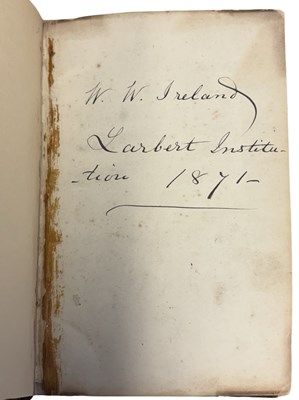 W. W. Ireland
Larbert Institu-
-tion 1871-